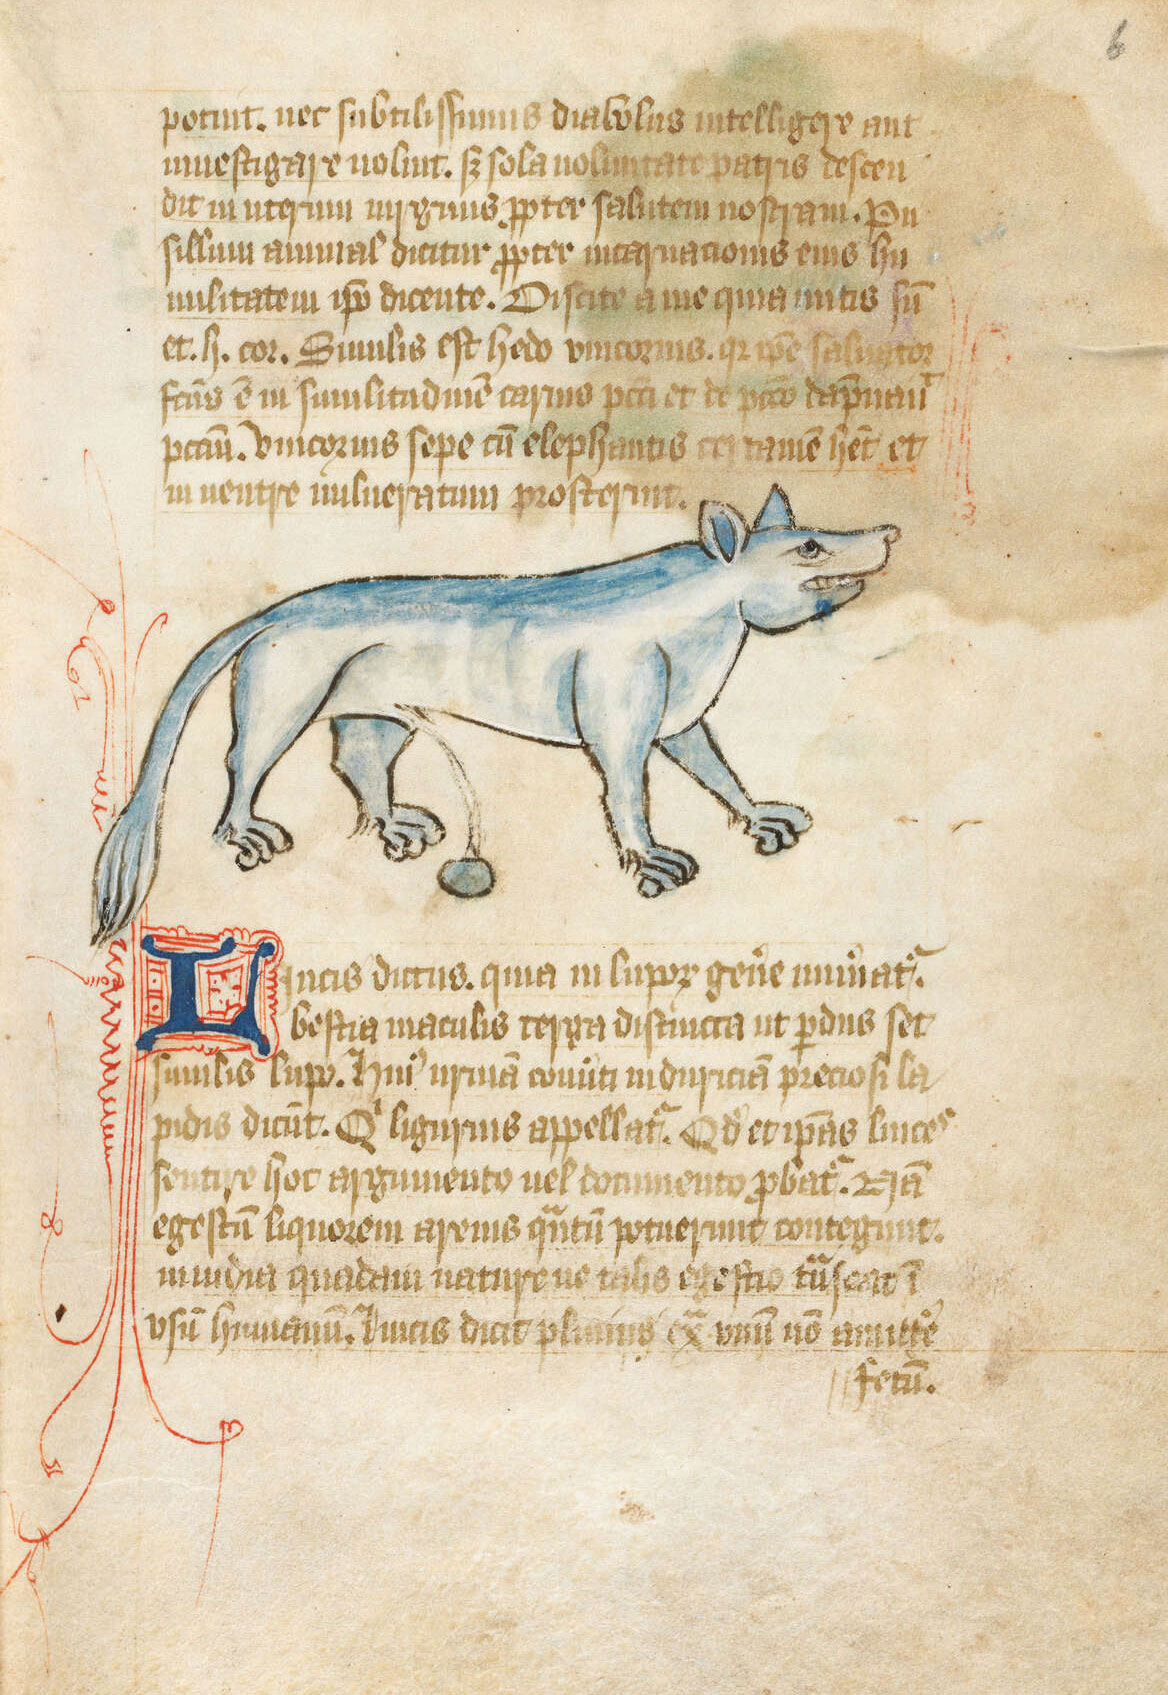 6
potuit. nec subtilissimus diabolus intelligere aut
inuestigare uoluit. sꝫ sola uoluntate patris descen
dit in uterum uirginis ꝓpter salutem nostram. Pu
sillum animal dicitur ꝓpter incarnacionis eius hu
militatem ipō dicente. Discite a me quia mitis sū
et. h. cor. Similis est hedo vnicornis. qꝛ ipē saluator
fcūs ē in similitudinē carnis pcci et de pcco dāpnauit
pccm̄. Vnicornis sepe cū elephantis certamē hēt et
in uentre uulneratum prosternit.
Lincis dictus. quia in lupoꝝ gen̄e numāt᷑.
bestia maculis terga distincta ut ꝑdus set
similis lupo. Huiꝰ urinā conu̓ti in duriciā preciosi la
pidis dicūt. Qͥ ligurius appellat᷑. Qd̓ et ip̄as linces
sentire hoc argumento uel documento ꝓbat᷑. Nā
egestū liquorem arenis qͣntū potuerunt contegunt.
inuidia quadam nature ne talis egestio tͣnseat ī
vsū humanū. Lincis dicit plinius exͣ vnū nō amitte᷑
fetū.